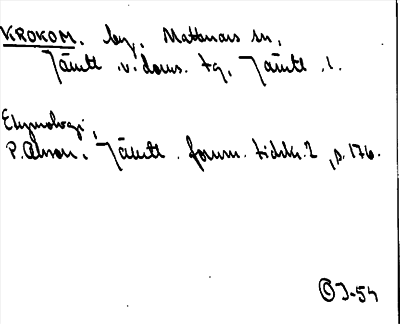 KROKOM, by, Mattmars sn,
Jämtl. v. doms. tg, Jämtl. l.
Etymologi,
P. Olsson, Jämtl. fornm. tidskr. 2, s. 176.
© J-54